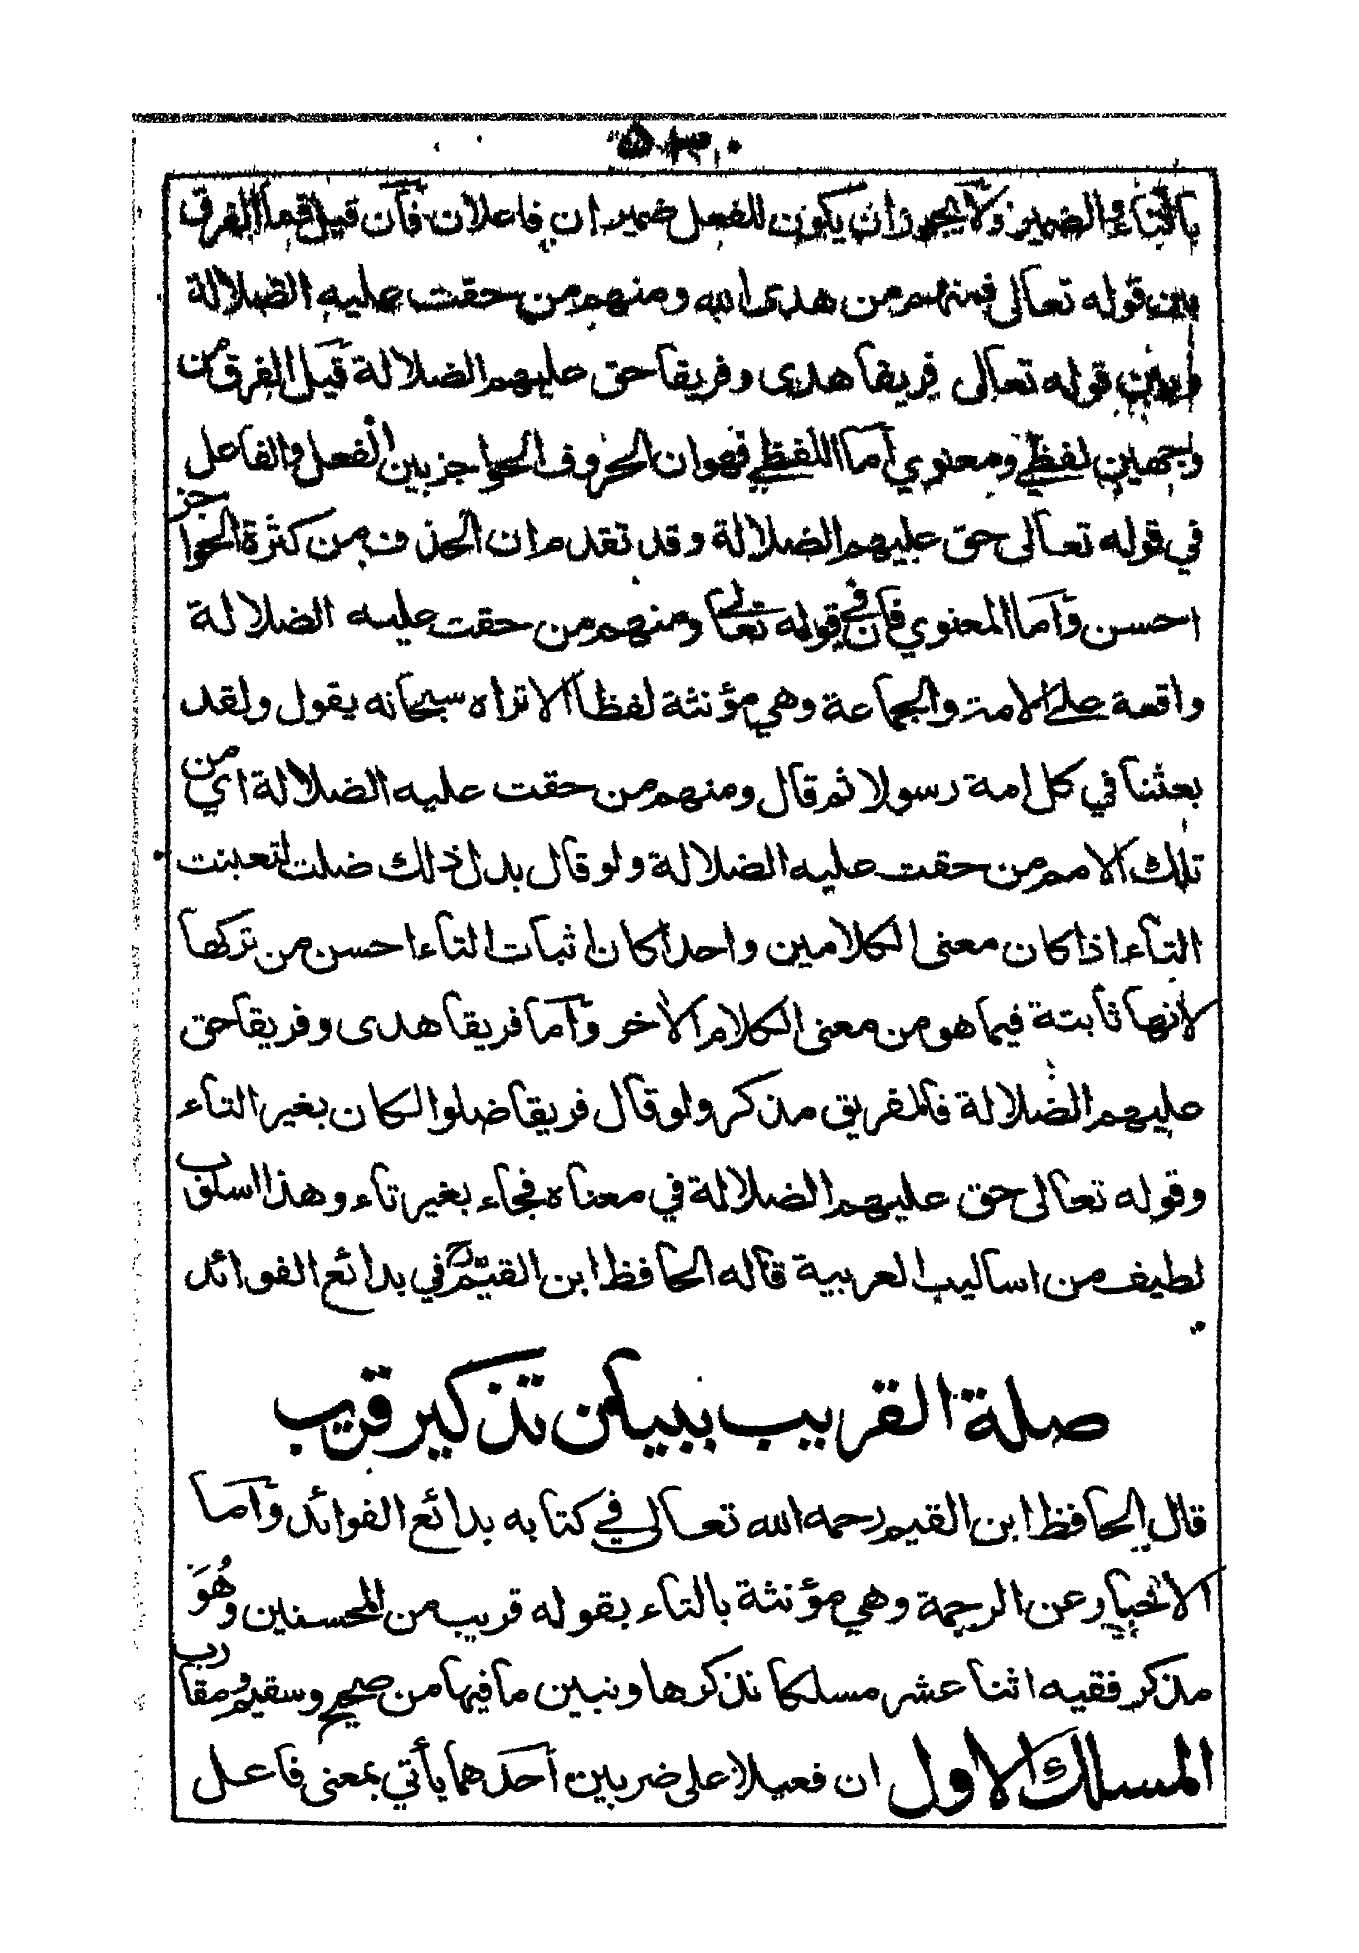 ٥٣٠
بالتاء والضمير ولا يجوز ان يكون للفعل ضميران فاعلان فان قيل فما الفرق
بين قوله تعالى فمنهم من هدى الله ومنهم من حقت عليه الضلالة
وبين قوله تعالى فريقا هدى وفريقا حق عليهم الضلالة قيل الفرق من
وجهين لفظي ومعنوي أما اللفظي فهو ان الحروف الحواجز بين الفعل والفاعل
في قوله تعالى حق عليهم الضلالة وقد تقدم ان الحذف من كثرة الحواجز
احسن وأما المعنوي فان في قوله تعالى ومنهم من حقت عليه الضلالة
واقعة على الامة والجماعة وهي مؤنثة لفظا الا تراه سبحانه يقول ولقد
بعثنا في كل امة رسولا ثم قال ومنهم من حقت عليه الضلالة اي من
تلك الامم من حقت عليه الضلالة ولو قال بدل ذلك ضلت لتعينت
التاء اذا كان معنى الكلامين واحدا كان اثبات التاء احسن من تركها
لانها ثابتة فيما هو من معنى الكلام الاخر وأما فريقا هدى وفريقا حق
عليهم الضلالة فالفريق مذكر ولو قال فريقا ضلوا لكان بغير التاء
وقوله تعالى حق عليهم الضلالة في معناه فجاء بغير تاء وهذا اسلوب
لطيف من اساليب العربية قاله الحافظ ابن القيم في بدائع الفوائد
صلة القريب ببيان تذكير قريب
قال الحافظ ابن القيم رحمه الله تعالى في كتابه بدائع الفوائد وأما
الاخبار عن الرحمة وهي مؤنثة بالتاء بقوله قريب من المحسنين وهو
مذكر ففيه اثنا عشر مسلكا نذكرها ونبين ما فيها من صحيح وسقيم ومقارب
المسلك الاول ان فعيلا على ضربين أحدهما يأتي بمعنى فاعل